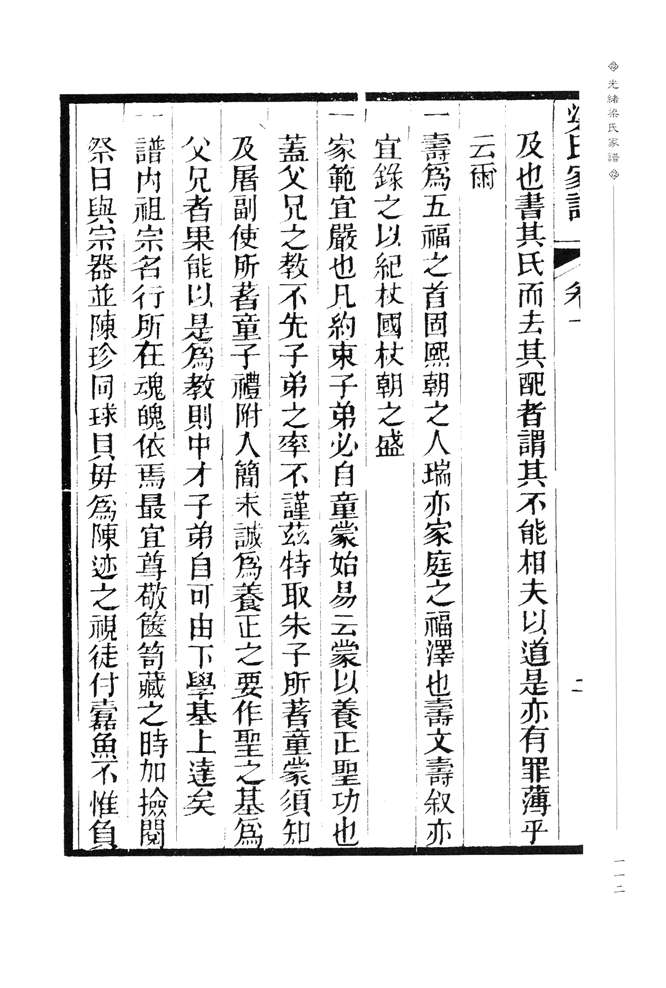 光緒梁氏家譜
一一二
梁氏家譜 卷一 二
及也書其氏而去其配者謂其不能相夫以道是亦有罪薄乎
云爾
一壽爲五福之首固熙朝之人瑞亦家庭之福澤也壽文壽叙亦
宜錄之以紀杖國杖朝之盛
一家範宜嚴也凡約束子弟必自童蒙始易云蒙以養正聖功也
蓋父兄之教不先子弟之率不謹茲特取朱子所著童蒙須知
及屠副使所著童子禮附人簡末誠爲養正之要作聖之基爲
父兄者果能以是爲教則中才子弟自可由下學基上達矣
一譜內祖宗名行所在魂魄依焉最宜尊敬篋笥藏之時加撿閱
祭日與宗器並陳珍同球貝毋爲陳迹之視徒付蠹魚不惟負